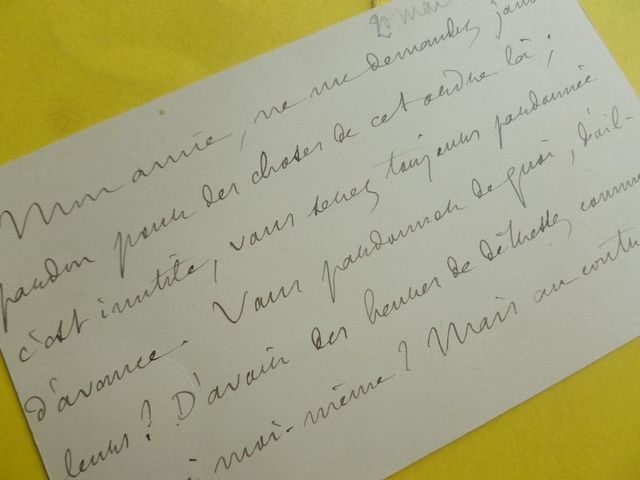 2 mai
Mon amie, ne me demandez jam
pardon pour des choses de cet ordre là ;
c'est inutile, vous serez toujours pardonnée
d'avance. Vous pardonner de quoi, d'ail-
leurs ? D'avoir des heures de détresse comme
à moi-même ? Mais au contr